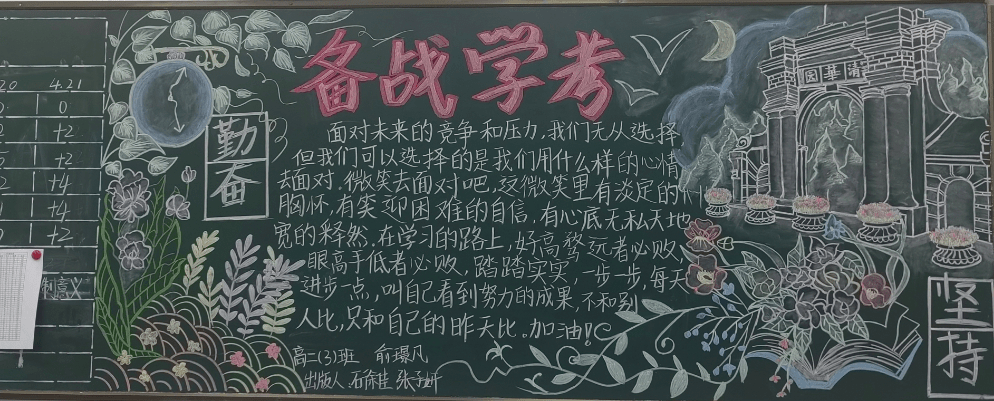 备战学考
20 4.21
0
+2
+2
+4
+4
+2
勤奋
清华园
面对未来的竞争和压力,我们无从选择,
但我们可以选择的是我们用什么样的心情
去面对.微笑去面对吧,这微笑里有淡定的
胸怀,有笑迎困难的自信,有心底无私天地
宽的释然.在学习的路上,好高骛远者必败,
眼高手低者必败,踏踏实实,一步一步,每天
进步一点,叫自己看到努力的成果,不和别
人比,只和自己的昨天比.加油!
高二(3)班
出版人
坚持